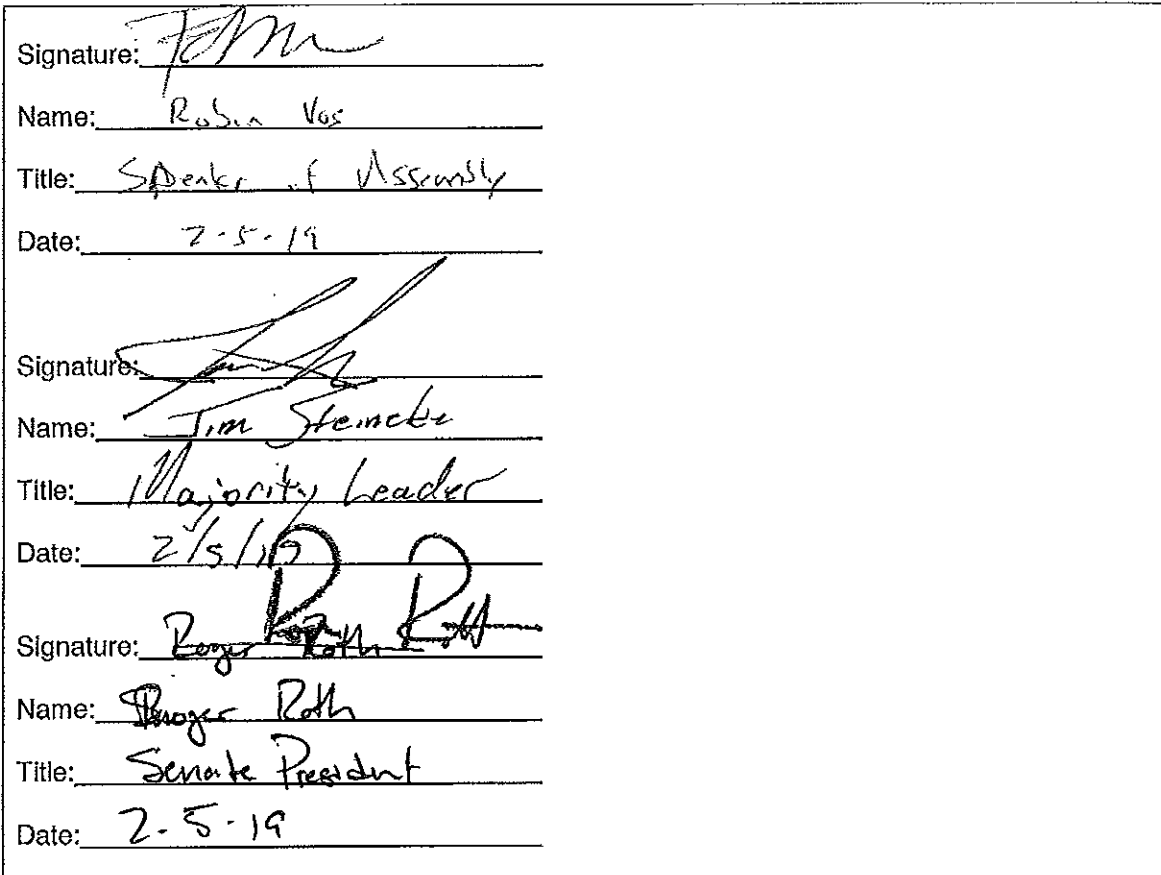 Signature:
Name: Robin Vos
Title: Speaker of Assembly
Date: 2-5-19
Signature:
Name: Jim Steineke
Title: Majority Leader
Date: 2/5/19
Signature: Roger Roth Roger Roth
Name: Roger Roth
Title: Senate President
Date: 2-5-19